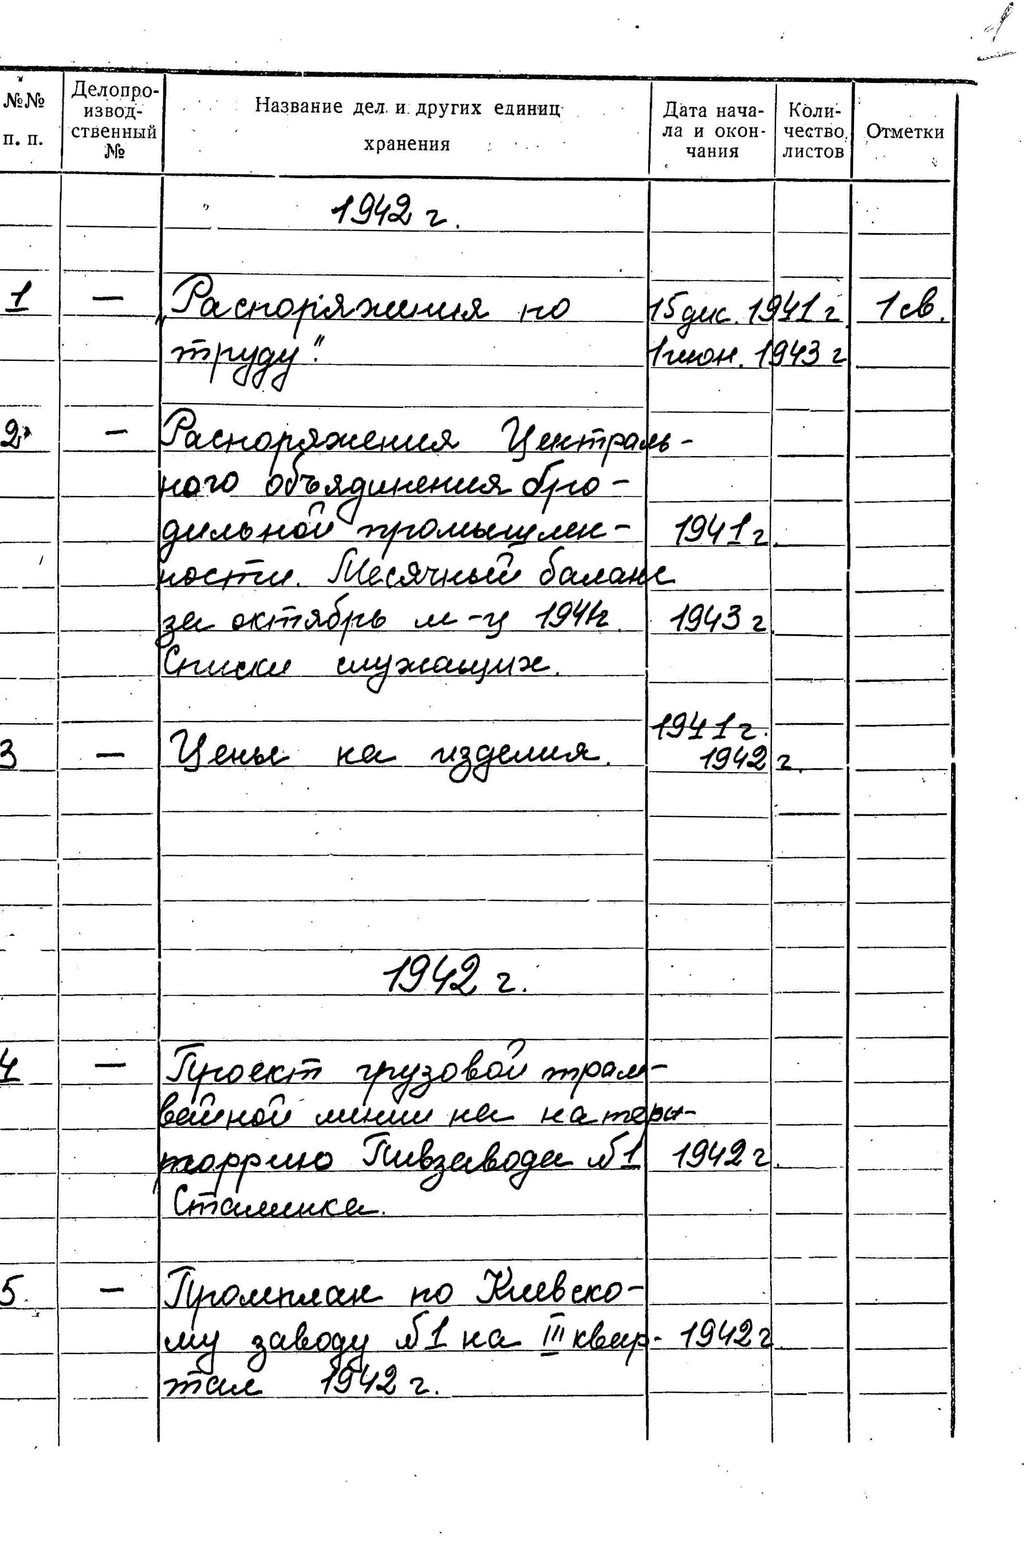 №№ п. п.
Делопроизвод-ственный №
Название дел и других единиц хранения
Дата нача-ла и окон-чания
Коли-чество листов
Отметки
1942 г.
1 — „Распоряжения по 15 дек. 1941 г. 1 св.
труду“. 1 июн. 1943 г
2 — Распоряжения Централь-
ного объединения бро-
дильной промышлен- 1941 г.
ности. Месячный баланс
за октябрь м-ц 1941г. 1943 г.
Списки служащих.
1941 г.
3 — Цены на изделия. 1942 г.
1942 г.
4 — Проект грузовой трам-
вейной линии на на тери-
торрию Пивзавода №1 1942 г.
Сталинка.
5. — Промплан по Киевско-
му заводу №1 на III квар- 1942 г.
тал 1942 г.